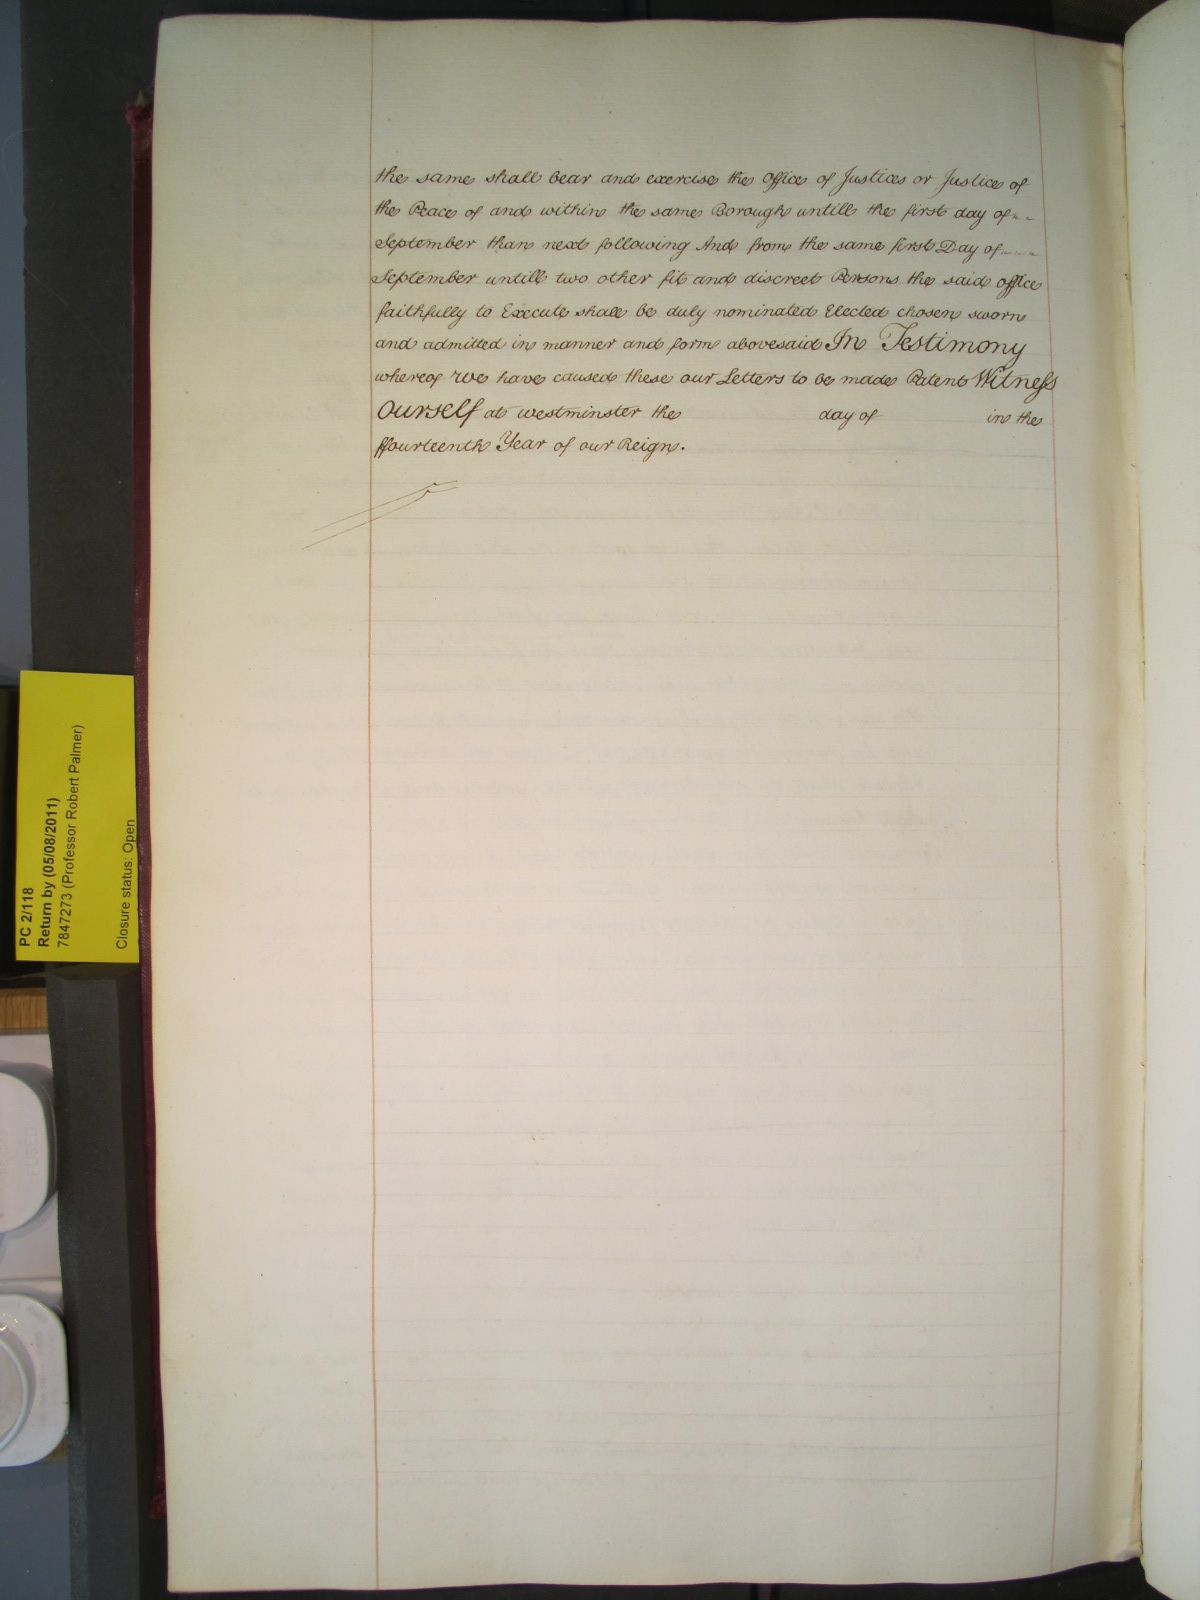 the same shall bear and exercise the Office of Justices or Justice of
the Peace of and within the same Borough untill the first day of - -
September than next following And from the same first Day of
September untill two other fit and discreet Persons the said office
faithfully to Execute shall be duly nominated Elected chosen sworn
and admitted in manner and form abovesaid In Testimony
whereof We have caused these our Letters to be made Patent Witness
Ourself at westminster the day of in the
ffourteenth Year of our Reign.
PC 2/118
Return by (05/08/2011)
7847273 (Professor Robert Palmer)
Closure status: Open